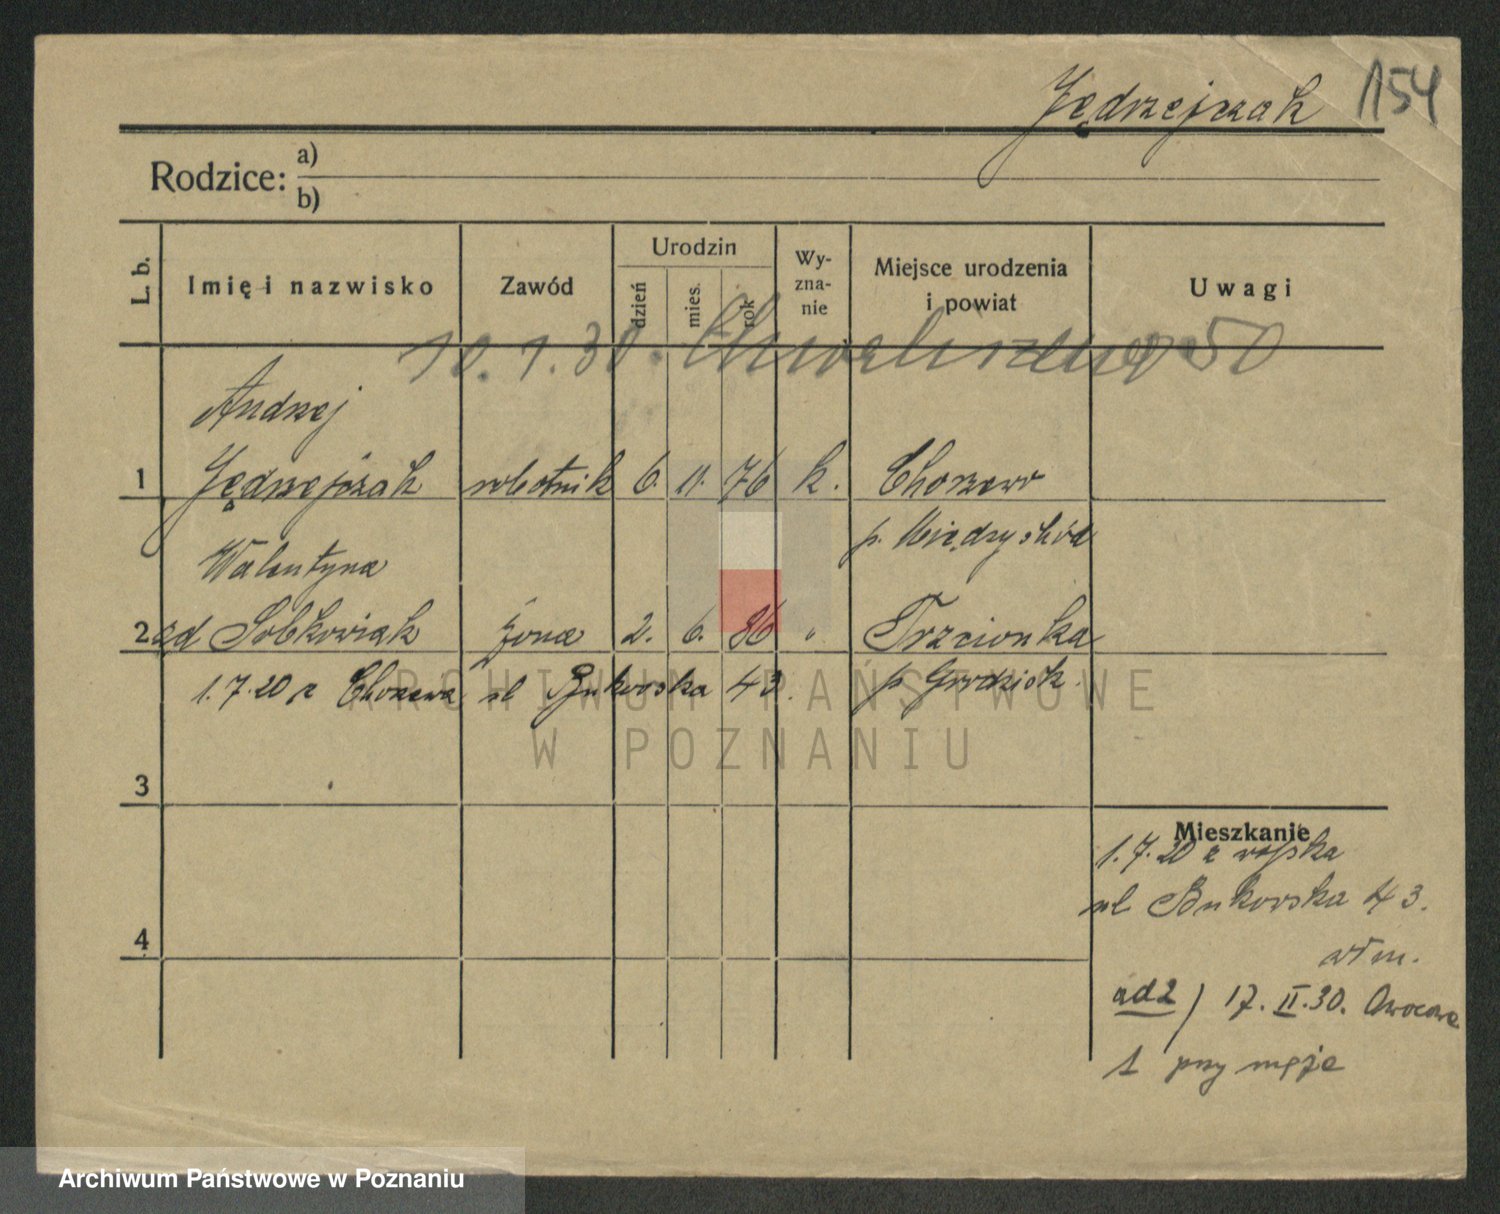 Jędrzejczak 154
Rodzice: a)
b)
L. b.
Imię i nazwisko
Zawód
Urodzin
dzień
mies.
rok
Wy-
zna-
nie
Miejsce urodzenia
i powiat
Uwagi
10.1.30. 50
Andrzej
1 Jędrzejczak robotnik 6. 11. 76 k. Chorzewo
p. Międzychód
Walentyna
2 zd Sobkowiak żona 2. 6. 86 " Trzcionka
1.7.20 z Chorzewa ul Bukowska 43. p. Grodzisk.
3
4
Mieszkanie
1.7.20 z wojska
ul Bukowska 43.
wł m.
ad 2) 17.II.30. Owocowa
1 przy męże
ARCHIWUM PAŃSTWOWE
W POZNANIU
Archiwum Państwowe w Poznaniu